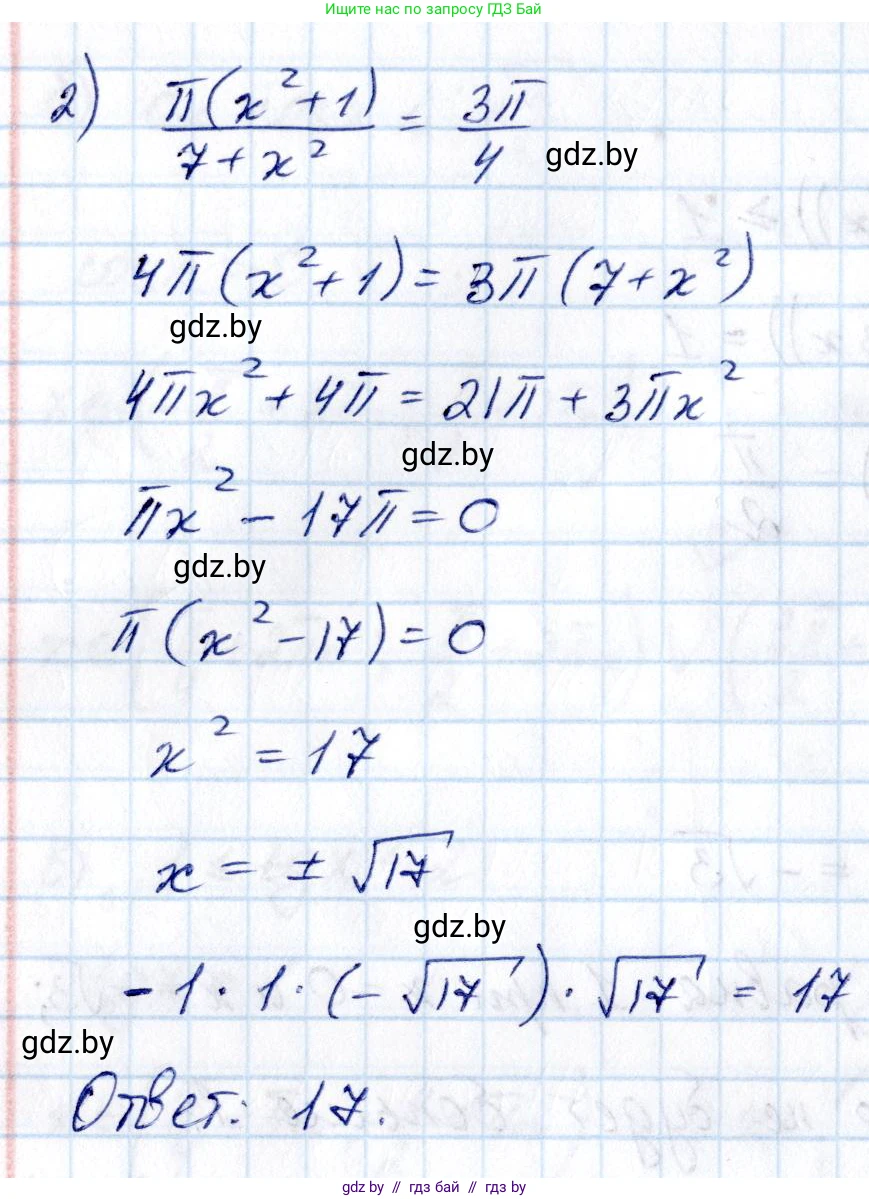 Ищите нас по запросу ГДЗ Бай
2) π(x²+1)/(7+x²) = 3π/4
gdz.by
4π(x²+1) = 3π(7+x²)
gdz.by
4πx² + 4π = 21π + 3πx²
gdz.by
πx² - 17π = 0
gdz.by
π(x²-17) = 0
x² = 17
x = ± √17
gdz.by
-1 · 1 · (-√17) · √17 = 17
gdz.by
Ответ: 17.
gdz.by // гдз бай // гдз by